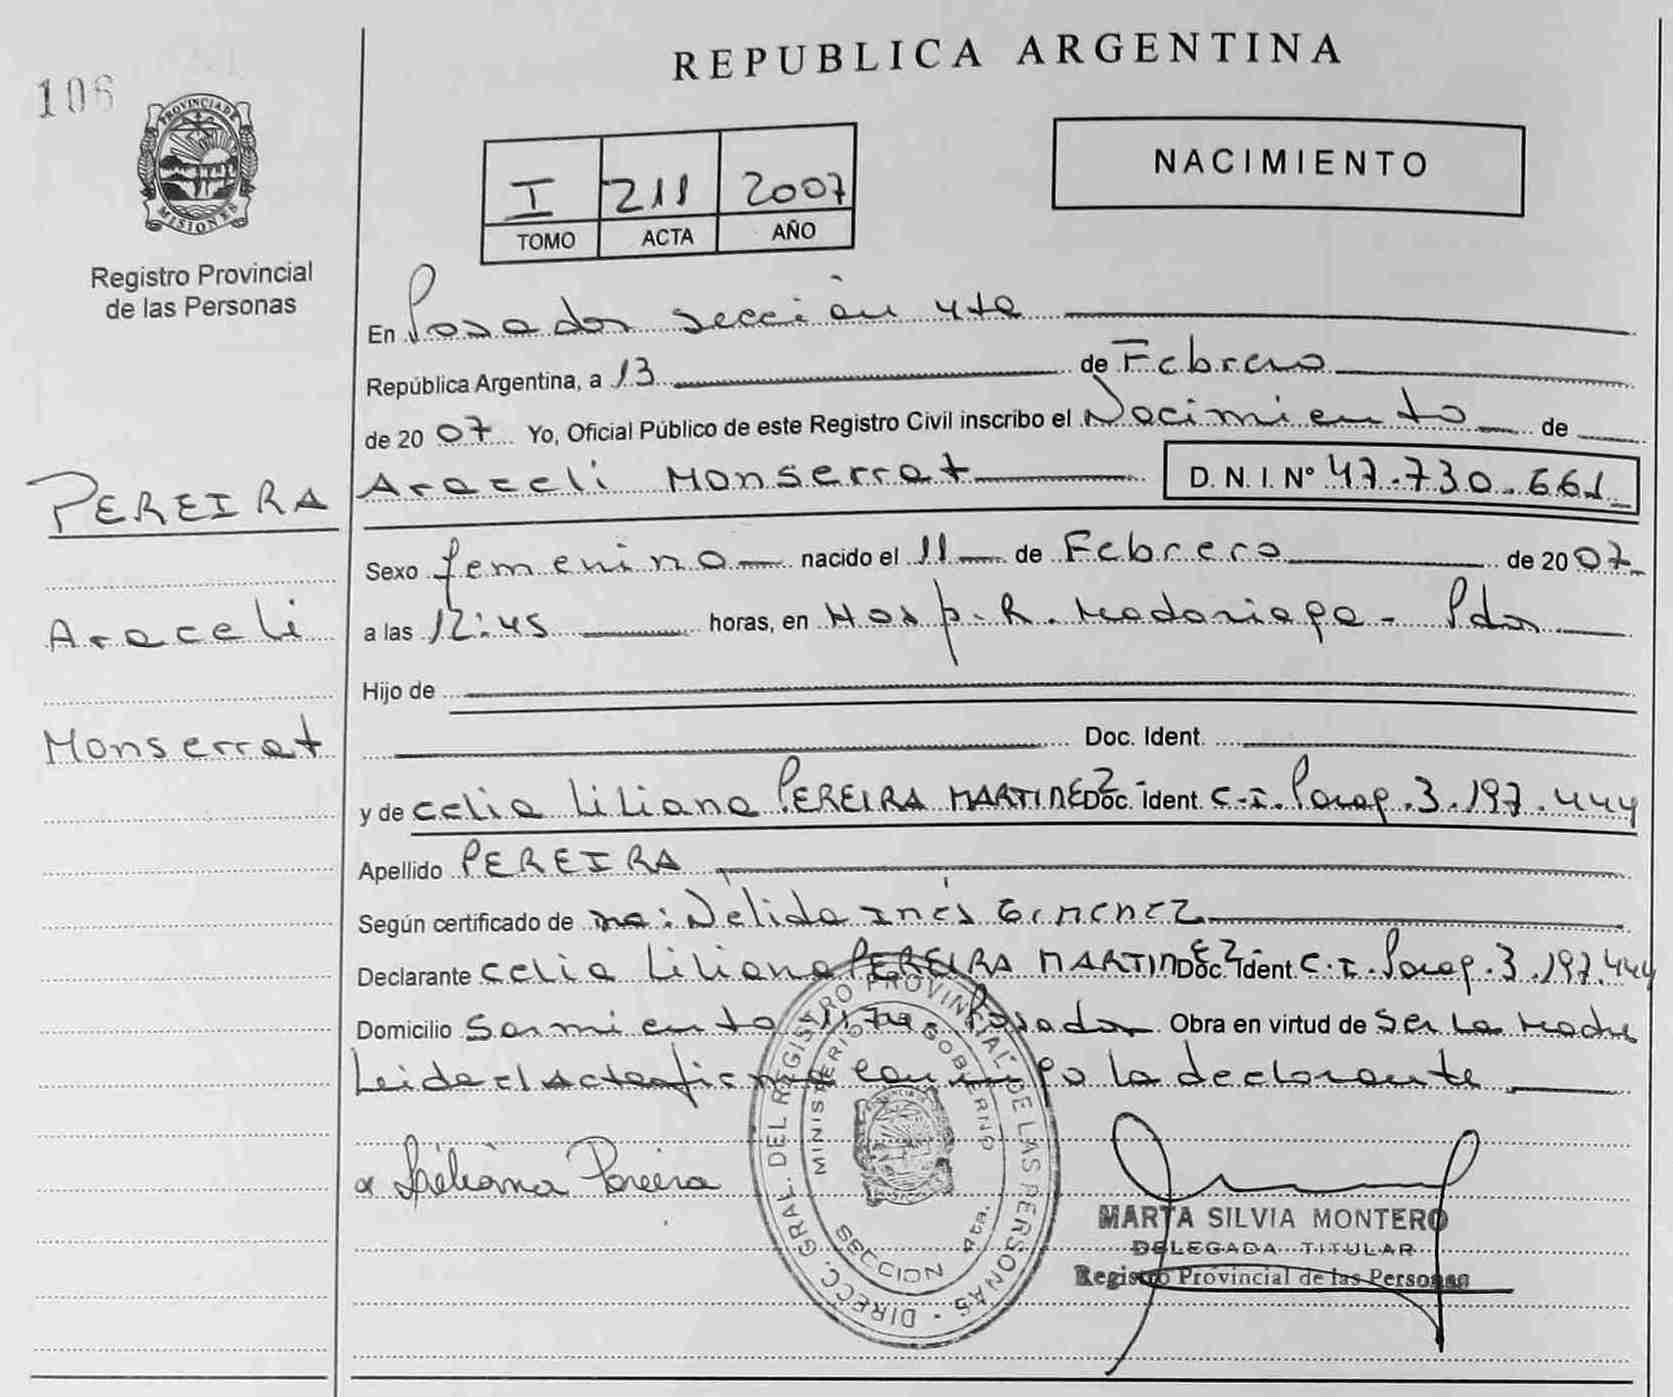 106
PROVINCIA DE
MISIONES
Registro Provincial
de las Personas
REPUBLICA ARGENTINA
I 211 2007
TOMO ACTA AÑO
NACIMIENTO
En Posadas sección 4ta
República Argentina, a 13 de Febrero
de 2007 Yo, Oficial Público de este Registro Civil inscribo el Nacimiento de
PEREIRA
Araceli Monserrat D. N. I. Nº 47.730.661
Sexo femenino nacido el 11 de Febrero de 2007
Araceli
a las 12:45 horas, en Hosp. R. Madariaga - Pdas
Hijo de
Monserrat
Doc. Ident.
y de Celia Liliana PEREIRA MARTINEZ Doc. Ident. C.I. Parag. 3.197.444
Apellido PEREIRA
Según certificado de Nélida Inés Gimenez
Declarante Celia Liliana PEREIRA MARTINEZ Doc. Ident. C.I. Parag. 3.197.444
Domicilio Sarmiento Posadas Obra en virtud de Ser la Madre
Leida el Acta firma conmigo la declarante
Liliana Pereira
DIRECC. GRAL. DEL REGISTRO PROVINCIAL DE LAS PERSONAS
MINISTERIO GOBIERNO
SECCION 4ta.
MARTA SILVIA MONTERO
DELEGADA TITULAR
Registro Provincial de las Personas